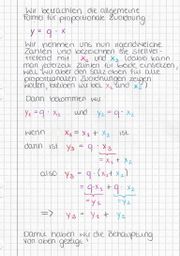 Wir betrachten die allgemeine
Formel für proportionale Zuordnung
y = q · x
Wir nehmen uns nun irgendwelche
Zahlen und bezeichnen sie stellver-
tretend mit x₁ und x₂ (dabei kann
man jederzeit Zahlen für beide einsetzen,
weil wir aber den Satz oben für alle
proportionalen Zuordnungen zeigen
wollen, bleiben wir bei x₁ und x₂).
Dann bekommen wir
y₁ = q · x₁ und y₂ = q · x₂
wenn x₃ = x₁ + x₂ ist
dann ist y₃ = q · x₃
= x₁ + x₂
also y₃ = q · (x₁ + x₂)
= q · x₁ + q · x₂
= y₁ = y₂
⇒ y₃ = y₁ + y₂
Damit haben wir die Behauptung
von oben gezeigt!